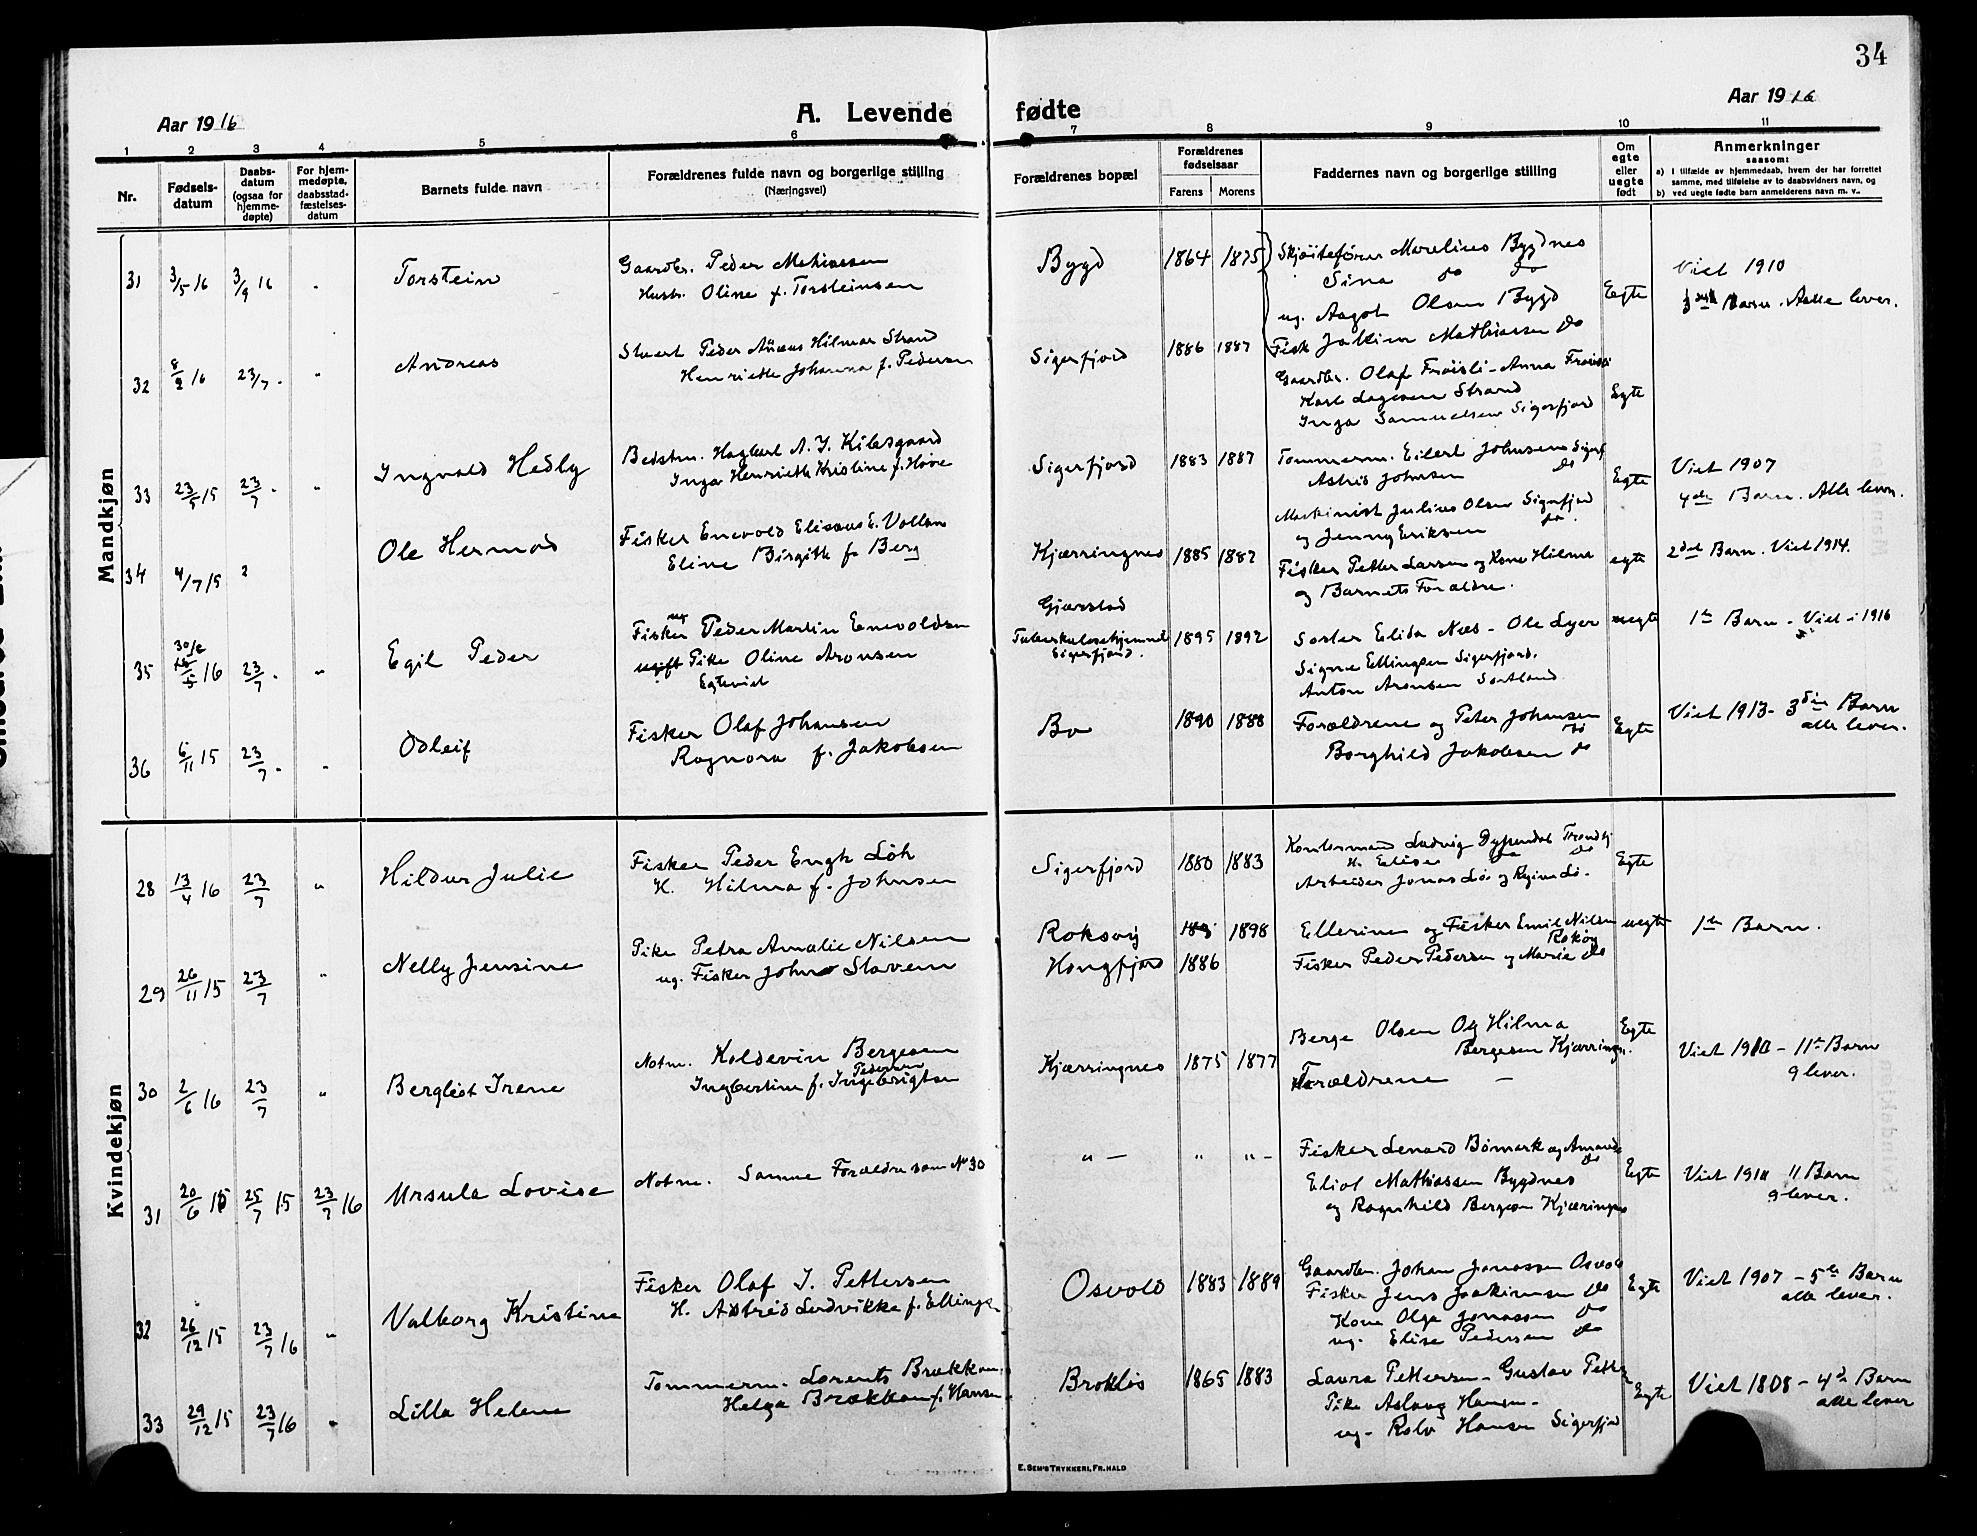 34
Aar 1916
A. Levende fødte
Aar 1916
1 2 3 4 5 6 7 8 9 10 11
Nr.
Fødsels-
datum
Daabs-
datum
(ogsaa for
hjemme-
døpte)
For hjem-
medøpte,
daabsstad-
fæstelses-
datum
Barnets fulde navn
Forældrenes fulde navn og borgerlige stilling
(Næringsvei)
Forældrenes bopæl
Forældrenes
fødselsaar
Farens Morens
Faddernes navn og borgerlige stilling
Om
egte
eller
uegte
født
Anmerkninger
saasom:
a) I tilfælde av hjemmedaab, hvem der har forrettet
samme, med tilføielse av to daabsvidners navn, og
b) ved uegte fødte barn anmelderens navn m. v..
Mandkjøn
31 3/5 16 3/9 16 Torstein
Gaardbr. Peder Mathiassen
Hustr. Oline f. Torsteinsen
Bygd 1864 1875
Skjøitefører Marelius Bygdnes
Sina do do
ug. Aagot Olsen Bygd
Fisk Jakim Mathiassen do
Egte
Viet 1910
Barn. Alle lever.
32 8/2 16 23/7 " Andreas
Peder Hilmar Strand
Henriette Johanna f. Pedersen
Sigerfjord 1886 1887
Gaardbr. Olaf Frøisli - Anna Frøisli
Karl Strand
Inga Samuelsen Sigerfjord
Egte
33 23/5 15 23/7 " Ingvald Hedly
Bedstm. Hagbart A. J. Kilesgaard
Inga Henriette Kristine f. Høve
Sigerfjord 1883 1887
Tømmerm. Eilert Johnsen Sigerf
Astrid Johnsen do
Maskinist Julius Olsen Sigerfjord
og Jenny Eriksen do.
Egte
Viet 1907
4de Barn. Alle lever.
34 4/7 15 Ole Hermod
Fisker Enevold Elisæus E. Vollan
Eline Birgith f. Berg
Kjærringnes 1885 1887
Fisker Petter Larsen og Kone Hilma
og Barnets Forældre.
egte
2det Barn. Viet 1914.
35 16 23/7 " Egil Peder
ug
Fisker Peder Martin Enevoldsen
ugift Pike Oline Aronsen
Egteviet
Gjærstad
Tuberkulosehjemmet
Sigerfjord.
1895 1892
Søster Elida Næs - Ole Lyer
Signe Ellingsen Sigerfjord.
Anton Aronsen Sortland
uegte
1te Barn - Viet i 1916
36 6/11 15 23/7 " Odleif
Fisker Olaf Johansen
Ragnora f. Jakobsen
Bo 1890 1888
Forældrene og Peter Johansen
Borghild Jakobsen do
Egte
Viet 1913 - 3die Barn
alle lever.
Kvindekjøn
28 13/4 16 23/7 " Hildur Julie
Fisker Peder Engh Løh
H. Hilma f. Johnsen
Sigerfjord 1880 1883
Kontormand Ludvig Trondhj
H. Elise do do
Arbeider Jonas Lø og Regine Lø.
Egte
29 26/11 15 23/7 " Nelly Jensine
Pike Petra Amalie Nilsen
ug. Fisker John Slavem
Roksøy 1898
Hongfjord 1886
Ellerine og Fisker Emil Nilsen
Rokøy
Fisker Peder Pedersen og Marie do
uegte
1te Barn.
30 2/6 16 23/7 " Bergliot Irene
Notm. Koldevin Bergesen
Pedersen
Ingbertine f. Ingebrigtsen
Kjærringnes 1875 1877
Berge Olsen Og Hilma
Bergesen Kjærringn.
Forældrene —
Egte
Viet 1910 - 11te Barn
9 lever.
31 20/6 15 25/7 15 23/7 16 Ursula Lovise
Notm. Samme Forældre som No 30
" — " " -
Fisker Lenard Bømark og Amanda
do
Eliot Mathiassen Bygdnes
og Ragnhild Bergesen Kjærringnes
Egte
Viet 1910 11 Barn
9 lever.
32 26/12 15 23/7 16 " Valborg Kristine
Fisker Olaf J. Pettersen
H. Astrid Ludvikke f. Ellingsen
Osvold 1883 1889
Gaardbr. Johan Jonassen Osvold
Fisker Jens Joakimsen do
Kone Olga Jonassen do
ug. Elise Pedersen do
Egte
Viet 1907 - 5te Barn
alle lever.
33 29/12 15 23/7 16 " Lilla Helene
Tømmerm. Lorents Brækkan
Helga Brækkan f. Hansen
Brokløs 1865 1883
Laura Pettersen - Gustav Petter
Pike Aslaug Hansen -
ug. Rolv Hansen Sigerfjord
Egte
Viet 1808 - 4de Barn
alle lever
E. SEM'S TRYKKERI, FR.HALD